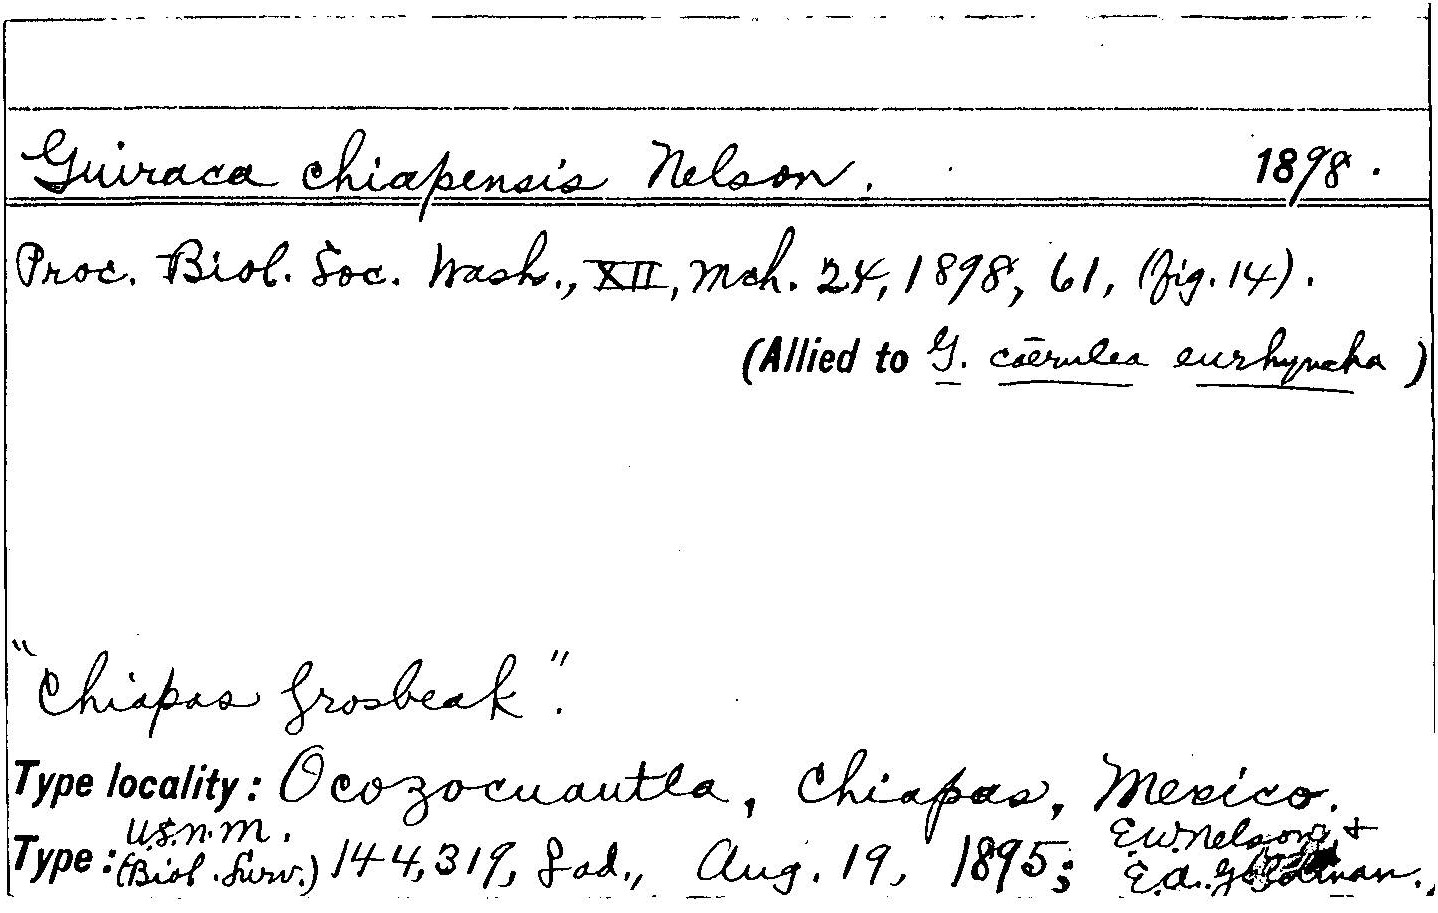 Guiraca chiapensis Nelson. 1898.
Proc. Biol. Soc. Wash., XII, Mch. 24, 1898, 61, (fig. 14).
(Allied to G. cāerulea eurhyncha)
"Chiapas Grosbeak".
Type locality: Ocozocuautla, Chiapas, Mexico.
U.S.N.M. E.W. Nelson &
Type: (Biol. Surv.) 144,319, ♂ad., Aug. 19, 1895; E.A. Goldman.,